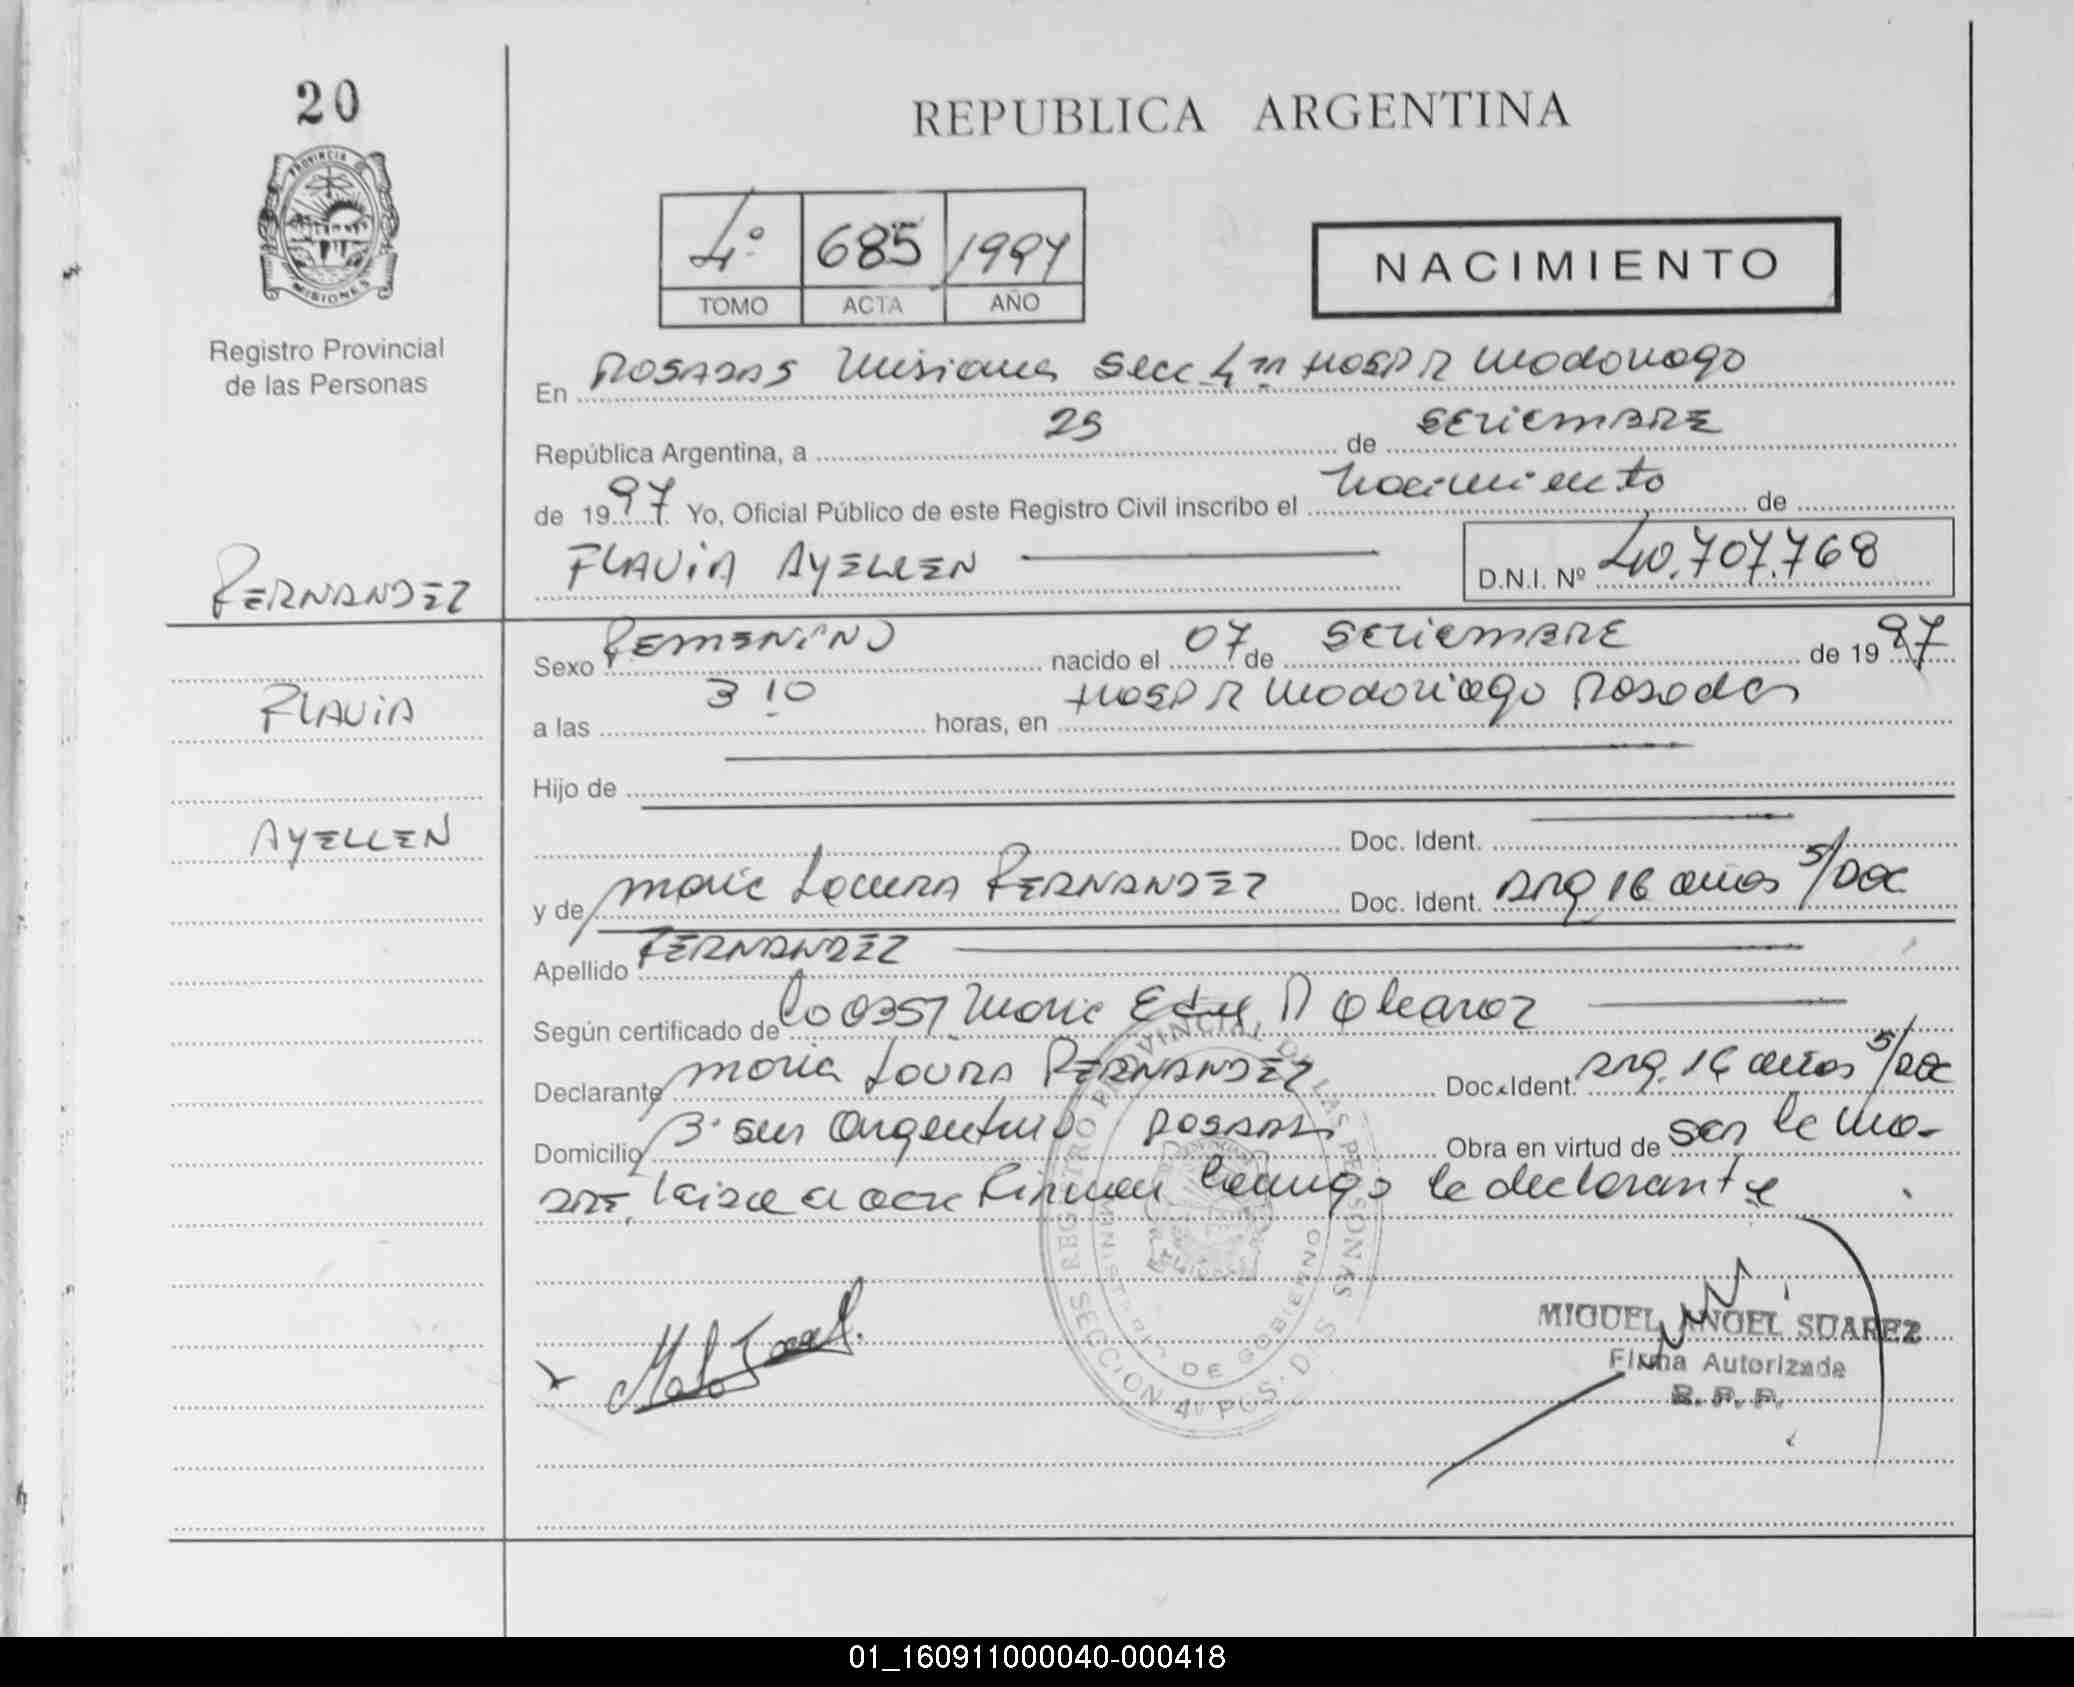 20
REPUBLICA ARGENTINA
PROVINCIA DE
MISIONES
4º 685 1997
TOMO ACTA AÑO
NACIMIENTO
Registro Provincial
de las Personas
En POSADAS Misiones Secc 4ta HOSP R Madariaga
República Argentina, a 25 de SETIEMBRE
de 1997 Yo, Oficial Público de este Registro Civil inscribo el Nacimiento de
FERNANDEZ
FLAVIA AYELLEN
D.N.I. Nº 40.707.768
Sexo FEMENINO nacido el 07 de SETIEMBRE de 1997
FLAVIA
a las 3 10 horas, en HOSP R Madariaga Posadas
Hijo de
AYELLEN
Doc. Ident.
y de Maria Laura FERNANDEZ Doc. Ident. ARG 16 años S/DOC
Apellido FERNANDEZ
Según certificado de Maria
Declarante Maria Laura FERNANDEZ Doc. Ident. ARG. 16 años S/DOC
Domicilio Bº San Argentino POSADAS Obra en virtud de ser la ma-
dre, Leida el acta Firman Conmigo la declarante
REGISTRO PROVINCIAL DE LAS PERSONAS
MINISTERIO DE GOBIERNO
SECCION 4º PCS. DAS
MIGUEL ANGEL SUAREZ
Firma Autorizada
R. P. P.
01_160911000040-000418